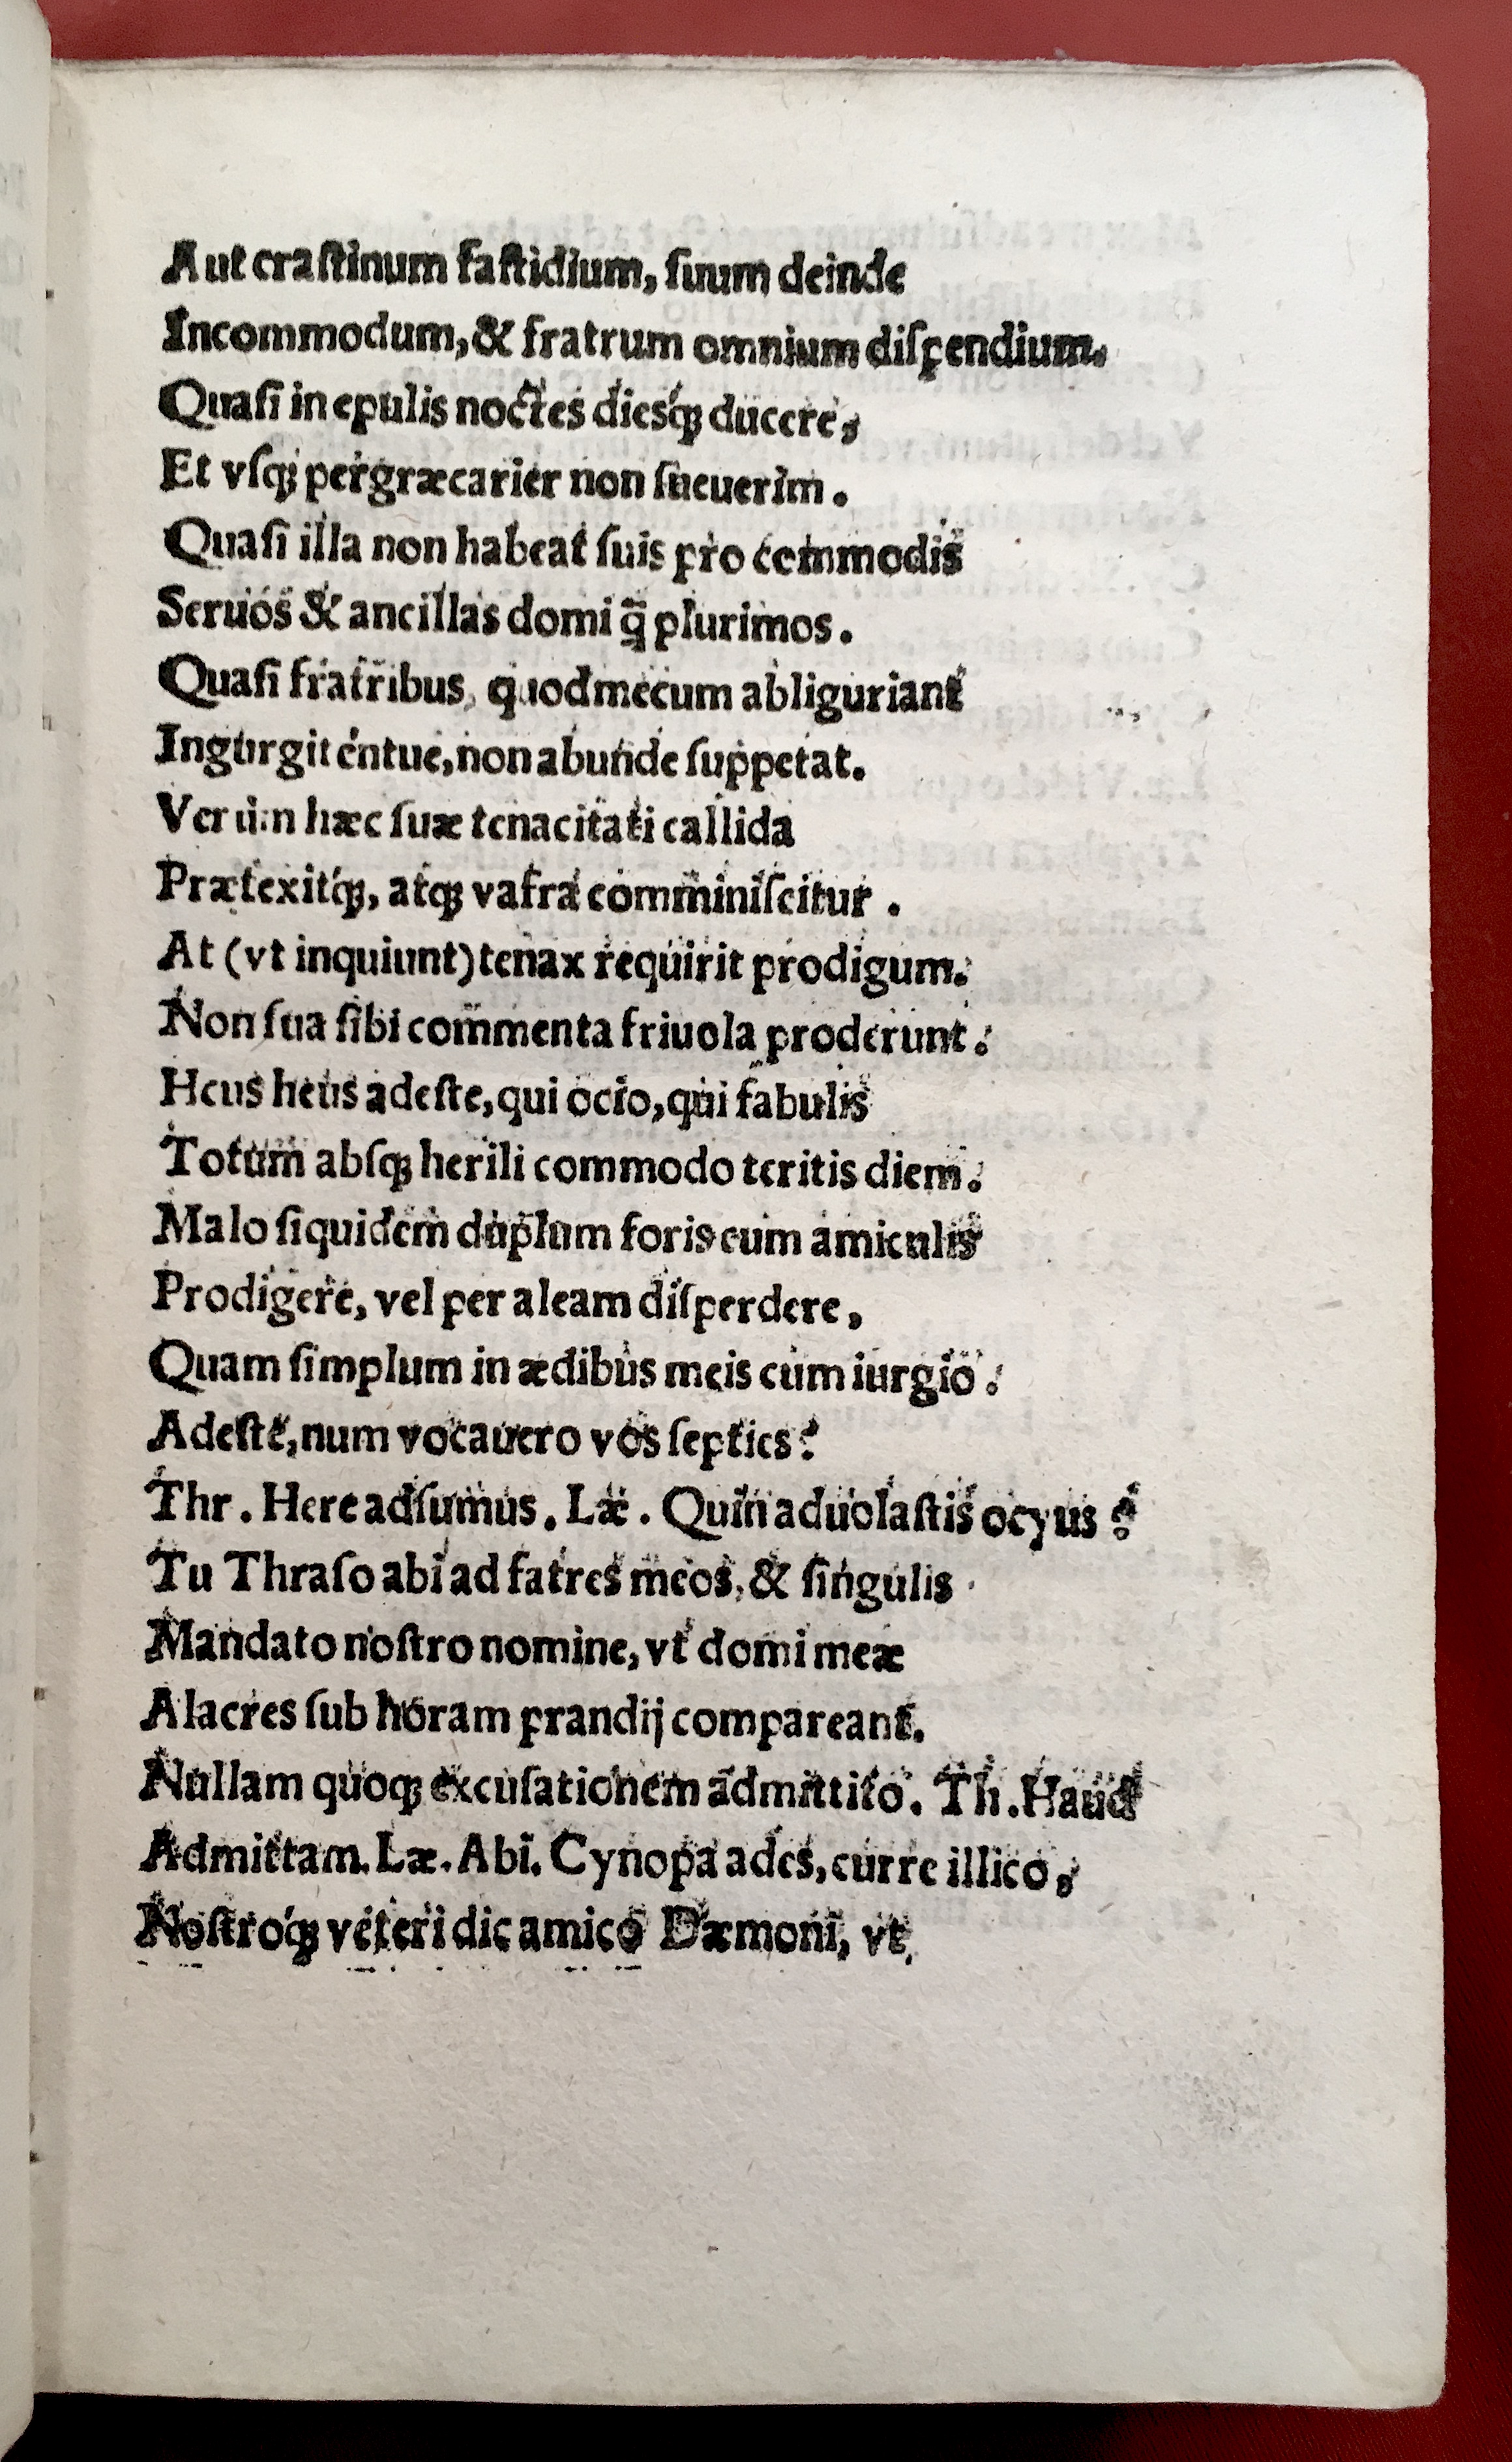 Aut craſtinum faſtidium, ſuum deinde
Incommodum, & fratrum omnium diſpendium.
Quaſi in epulis noctes dieſq́ꝫ ducere,
Et vſqꝫ pergræcarier non ſueuerim.
Quaſi illa non habeat ſuis pro commodis
Seruos & ancillas domi q̃ plurimos.
Quaſi fratribus, quod mecum abliguriant
Ingurgitentue, non abunde ſuppetat.
Verum hæc ſuæ tenacitati callida
Prætexitq́ꝫ, atqꝫ vafra comminiſcitur.
At (vt inquiunt) tenax requirit prodigum.
Non ſua ſibi commenta friuola proderunt.
Heus heus adeſte, qui ocio, qui fabulis
Totum abſqꝫ herili commodo teritis diem.
Malo ſiquidem duplum foris cum amiculis
Prodigere, vel per aleam diſperdere,
Quam ſimplum in ædibus meis cum iurgio.
Adeſte, num vocauero vos ſepties?
Thr. Here adſumus. Læ. Quin aduolaſtis ocyus?
Tu Thraſo abi ad fatres meos, & ſingulis
Mandato noſtro nomine, vt domi meæ
Alacres ſub horam prandij compareant.
Nullam quoqꝫ excuſationem admittito. Th. Haud
Admittam. Læ. Abi. Cynopa ades, curre illico,
Noſtroq́ꝫ veteri dic amico Dæmoni, vt